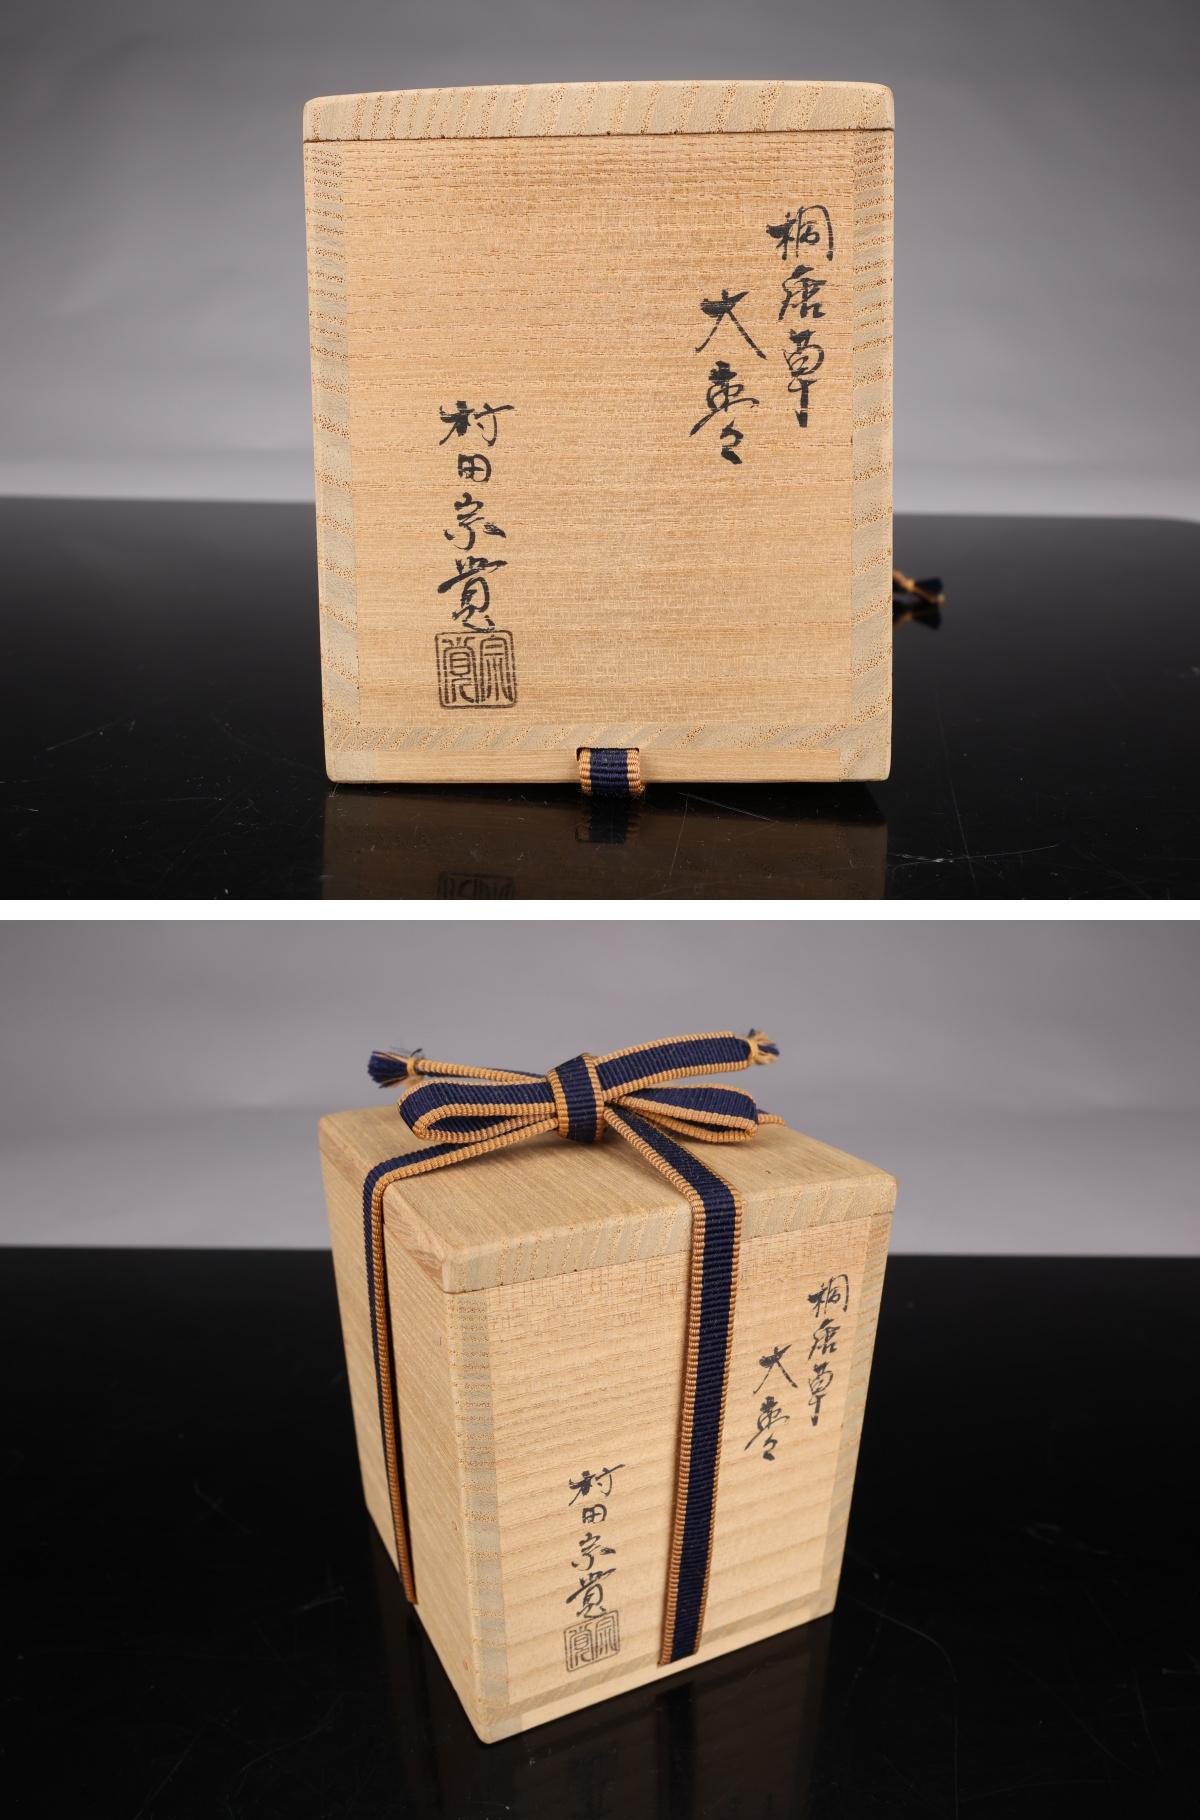 桐唐草
大棗
村田宗覚
宗覚
桐唐草
大棗
村田宗覚
宗覚